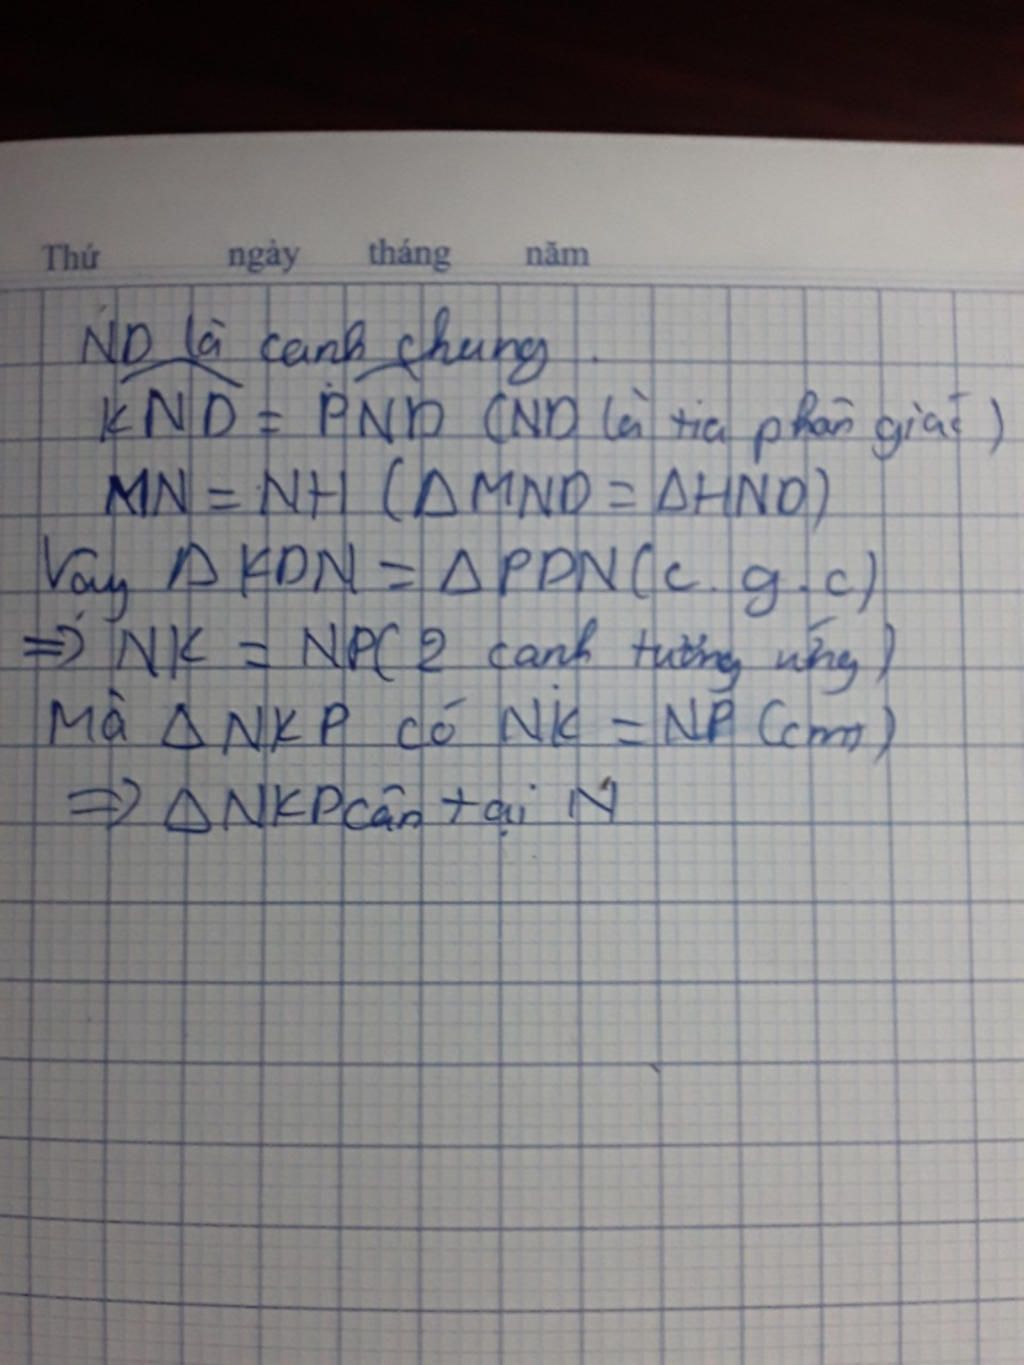 Thứ ngày tháng năm
ND là cạnh chung.
KND = PND (ND là tia phân giác)
MN = NH (ΔMND = ΔHND)
Vậy ΔKDN = ΔPDN (c.g.c)
=> NK = NP (2 cạnh tương ứng)
Mà ΔNKP có NK = NP (cmt)
=> ΔNKP cân tại N